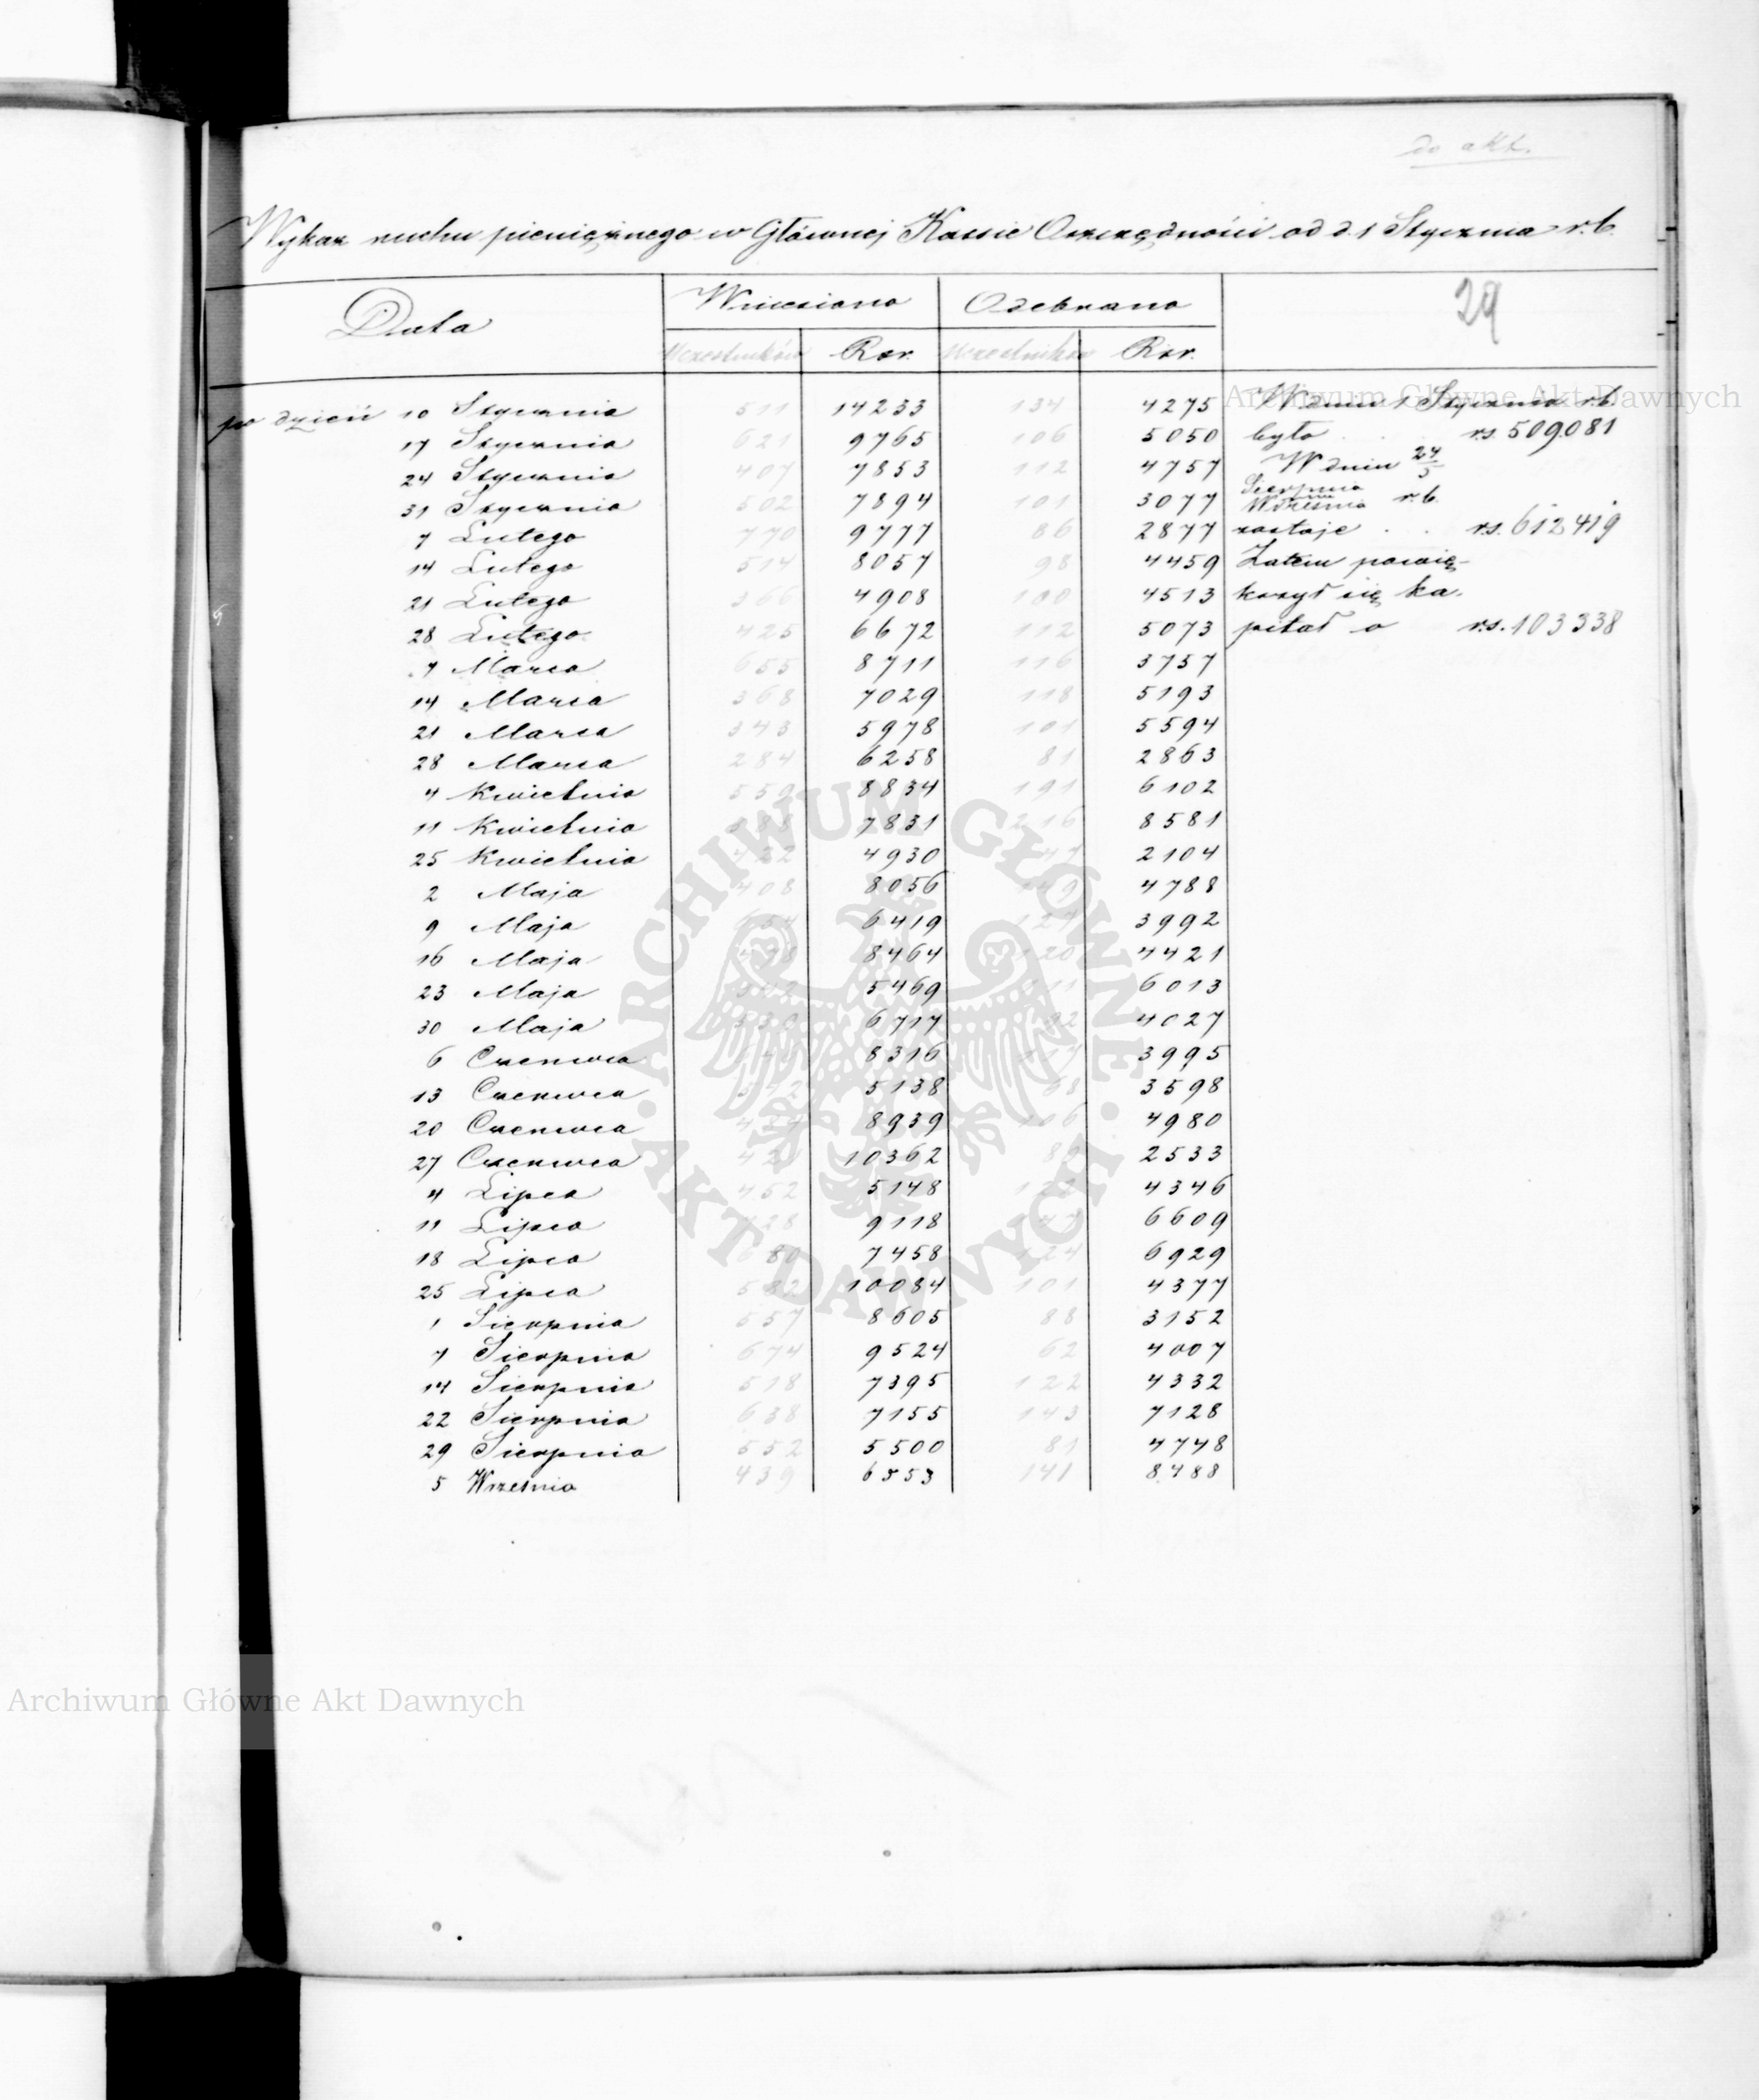 do akt.
Wykaz ruchu pieniężnego w Głównej Kassie Oszczędności od d. 1 Stycznia r.b.
Data Wniesiono Odebrano 29
Rsr. Rsr.
po dzień 10 Stycznia 511 14233 134 4275 W dniu 1 Stycznia r.b.
17 Stycznia 621 9765 106 5050 było . . rs. 509081
24 Stycznia 407 7853 112 4757 W dniu 24/5
31 Stycznia 502 7894 101 3077 Sierpnia Września r.b.
7 Lutego 770 9777 86 2877 zostaje . . rs. 612419
14 Lutego 514 8057 98 4459 Zatem powię-
21 Lutego 366 4908 100 4513 kszył się ka-
28 Lutego 425 6672 112 5073 pitał o rs. 103338
7 Marca 655 8711 116 3757
14 Marca 368 7029 118 5193
21 Marca 343 5978 101 5594
28 Marca 284 6258 81 2863
4 Kwietnia 559 8834 191 6102
11 Kwietnia 7831 216 8581
25 Kwietnia 422 4930 2104
2 Maja 408 8056 149 4788
9 Maja 6419 4 3992
16 Maja 8464 120 4421
23 Maja 5469 6013
30 Maja 6717 4027
6 Czerwca 8316 3995
13 Czerwca 5138 3598
20 Czerwca 8939 106 4980
27 Czerwca 10362 2533
4 Lipca 452 5148 4346
11 Lipca 9118 6609
18 Lipca 7458 124 6929
25 Lipca 582 10084 101 4377
1 Sierpnia 557 8605 88 3152
7 Sierpnia 674 9524 62 4007
14 Sierpnia 518 7395 122 4332
22 Sierpnia 638 7155 143 7128
29 Sierpnia 552 5500 81 4748
5 Września 439 6553 141 8488
Archiwum Główne Akt Dawnych
ARCHIWUM GŁÓWNE · AKT DAWNYCH ·
Archiwum Główne Akt Dawnych